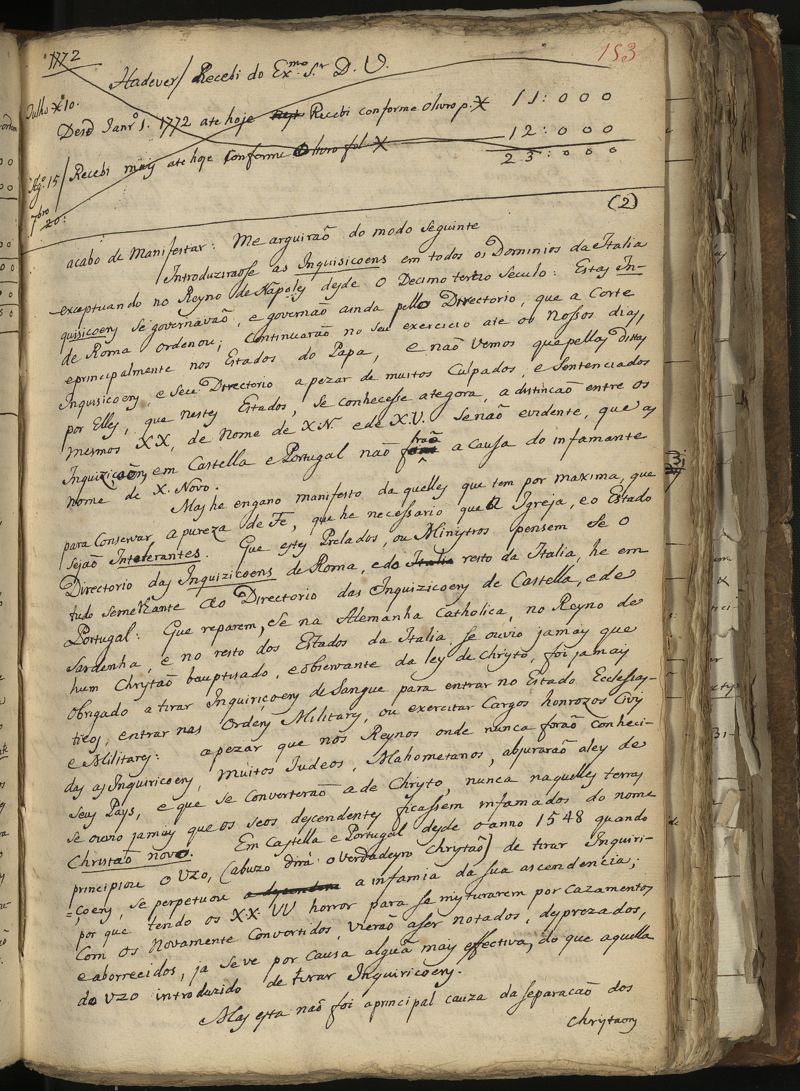 1772
153
Hadever / Recebi do Ex.mo S.r D. V.
Julho 10.
Desd Janr.o 1. 1772 ate hoje Recebi conforme o livro p. X 11:000
Ag.o 15 / Recebi mais ate hoje Conforme o livro fol X 12:000
7bro 20: 23:000
(2)
acabo de Manifestar: Me arguiraõ do modo seguinte
Introduziraose as Inquisicoens em todos os Dominios da Italia
exceptuando no Reyno de Napoles desde o Decimo tertio Seculo: Estas In-
quisicoens se governavaõ, e governaõ ainda pello Directorio, que a Corte
de Roma ordenou; Continuaraõ no seu exercicio ate os Nossos dias,
eprincipalmente nos Estados do Papa, e naõ Vemos que pellas ditas
Inquisicoens, e Seu Directorio a pezar de muitos Culpados, e Sentenciados
por Elles, que nestes Estados, se conhecesse ategora, a distincaõ entre os
mesmos XX, de Nome de X.N. e de X.V. Senaõ evidente, que as
Inquizicoens em Castella e Portugal naõ foraõ a Causa do infamante
nome de X. Novo.
Mas he engano manifesto da quelles que tem por maxima, que
para Conservar, a pureza de Fe, que he necessario que a Igreja, e o Estado
sejaõ Intolerantes. Que estes Prelados, ou Ministros pensem se o
Directorio das Inquizicoens de Roma, e do Italia resto da Italia, he em
tudo semelhante ao Directorio das Inquizicoens de Castella, e de
Portugal: Que reparem, se na Alemanha Catholica, no Reyno de
Sardenha, e no resto dos Estados da Italia, se ouvio jamais que
hum Christaõ bauptisado, e observante da ley de Christo, foi jamais
Obrigado a tirar Inquiricoens de Sangue para entrar no Estado Ecclesias-
ticos, entrar nas Ordens Militares, ou exercitar Cargos honrozos Civis
e Militares: apezar que nos Reynos onde nunca foraõ Conheci-
das as Inquiricoens, Muitos Judeos, Mahometanos, abjuraraõ a ley de
Seus Pays, e que se Converteraõ a de Christo, nunca naquelles terras
se ouvio jamais que os seos descendentes ficassem infamados do nome
Christaõ novo. Em Castella e Portugal desde o anno 1548 quando
principiou o Uzo, (abuzo dirá o verdadeyro Christaõ) de tirar Inquiri-
=coens, se perpetuou a infamia da sua ascendencia;
por que tendo os XX. VV horror para se misturarem por Cazamentos
Com os Novamente Convertidos, vieraõ aser notados, desprezados,
e aborrecidos, ja se ve por Causa alguã mais effectiva, do que aquella
do Uzo introduzido de tirar Inquiricoens.
Mas esta naõ foi a principal cauza da separacaõ dos
Christaons